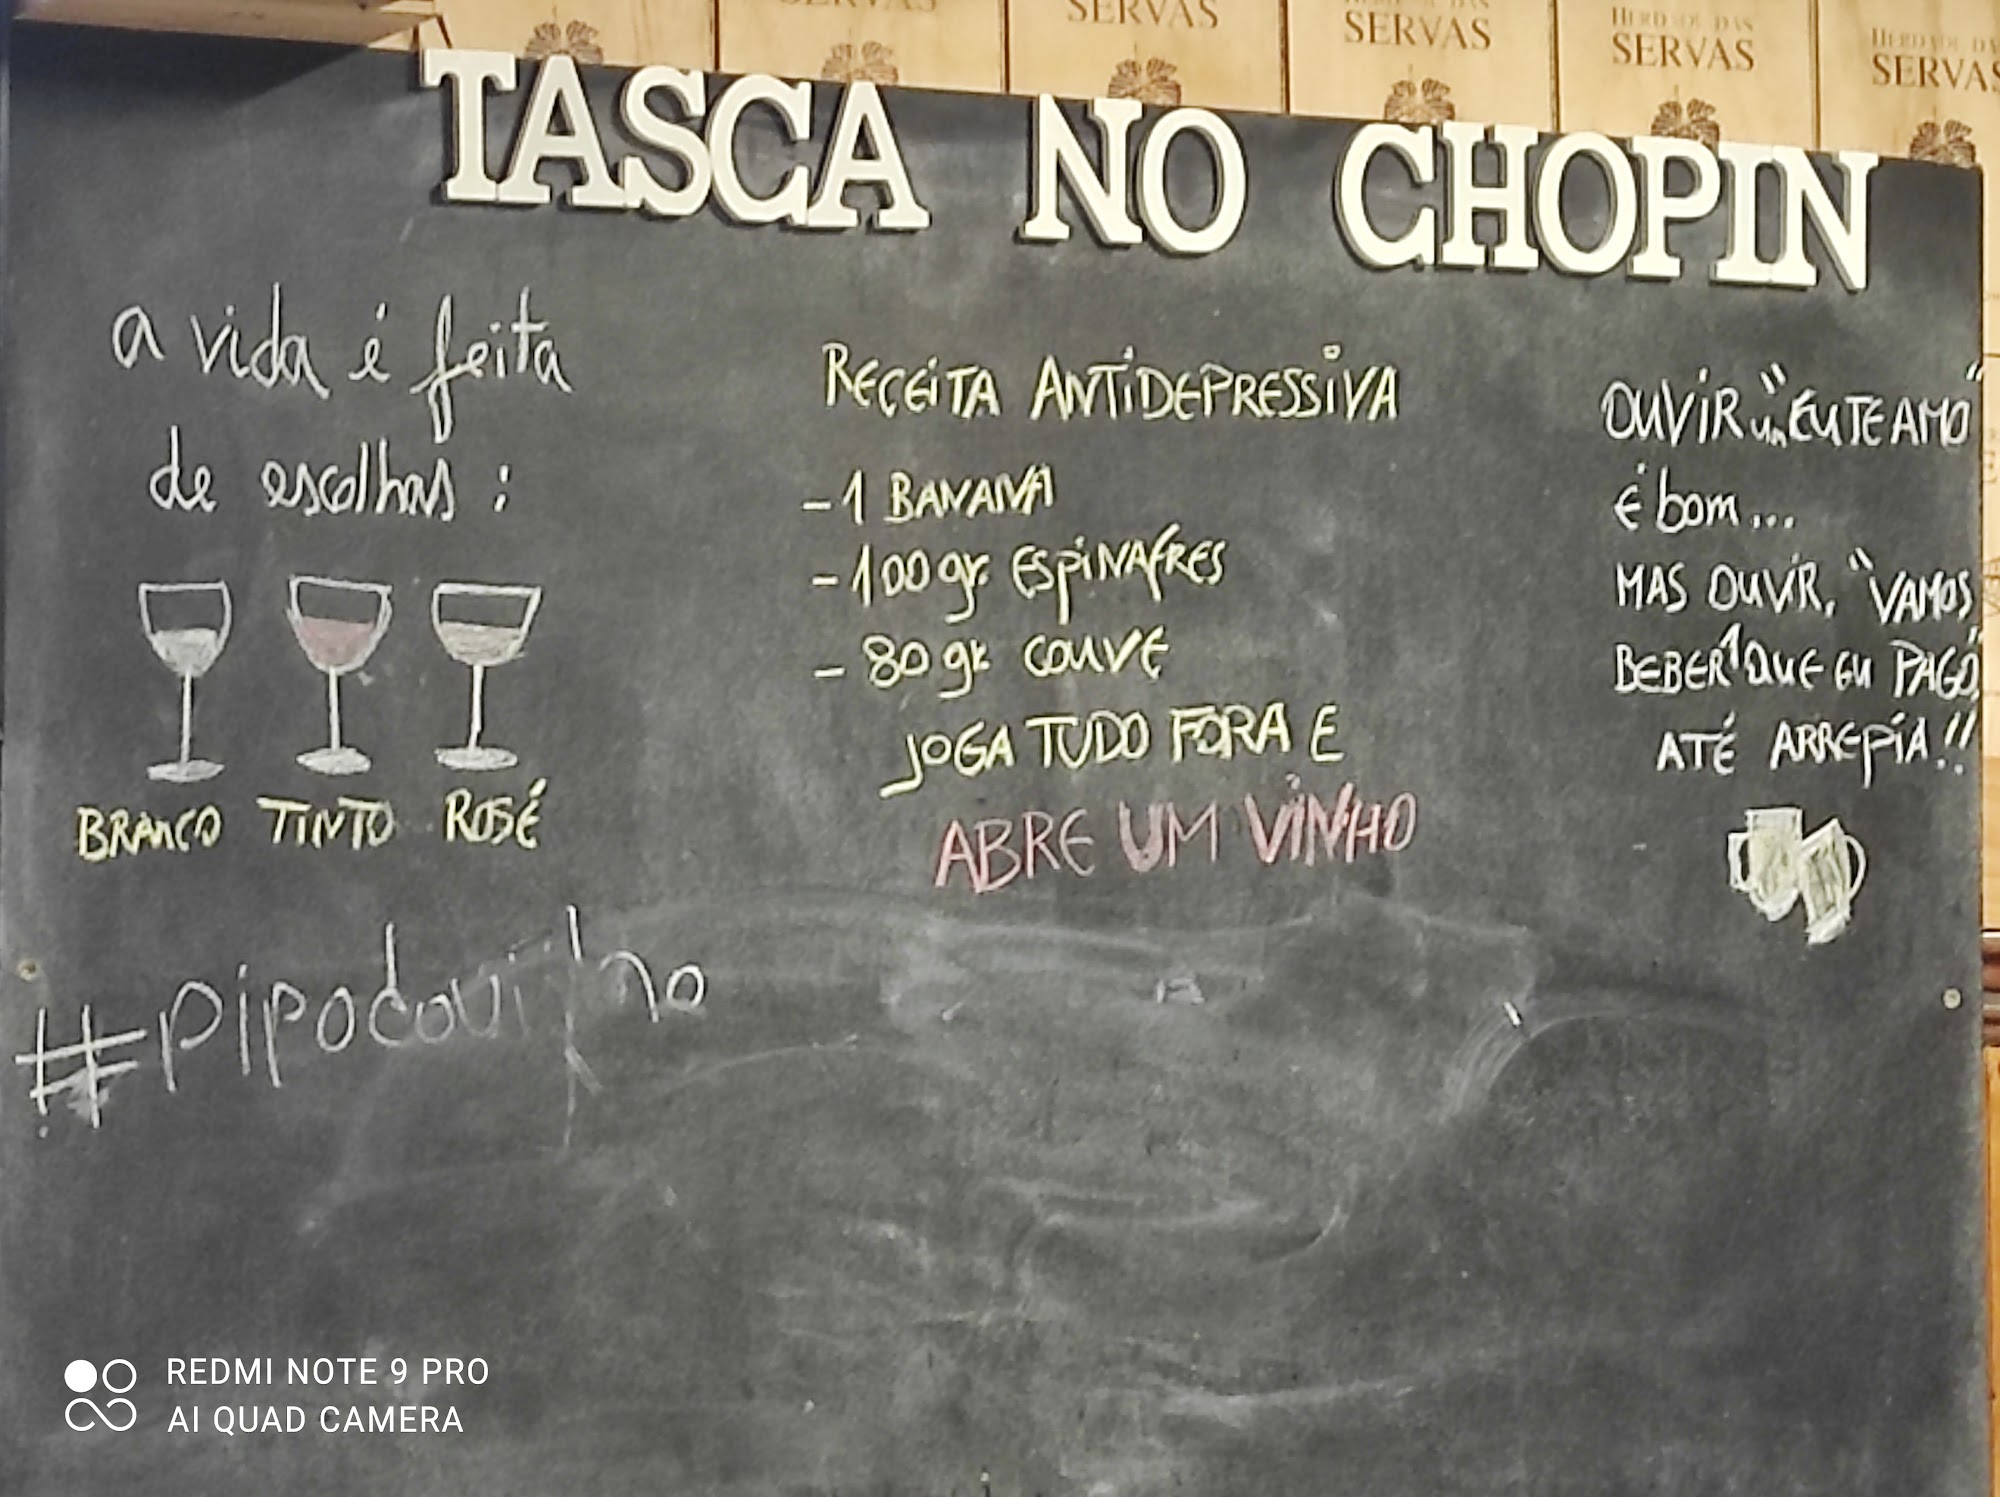 SERVAS
SERVAS
HERDADE DAS
SERVAS
HERDADE DAS
SERVAS
HERDADE DAS
SERVAS
TASCA NO CHOPIN
a vida é feita
de escolhas :
BRANCO TINTO ROSÉ
#pipocovinho
RECEITA ANTIDEPRESSIVA
- 1 BANANA
- 100 gr. ESPINAFRES
- 80 gr. COUVE
JOGA TUDO FORA E
ABRE UM VINHO
OUVIR um "EU TE AMO"
É bom...
MAS OUVIR, "VAMOS
BEBER 1 QUE EU PAGO"
ATÉ ARREPIA!!
REDMI NOTE 9 PRO
AI QUAD CAMERA